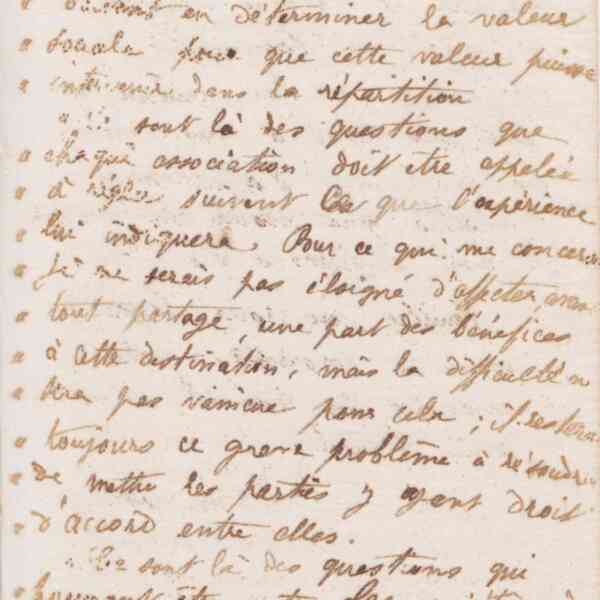 " en déterminer la valeur
" sociale pour que cette valeur puisse
" intervenir dans la répartition
" Ce sont là des questions que
" chaque association doit être appelée
" à régler suivant ce que l'expérience
" lui indiquera. Pour ce qui me concerne
" je ne serais pas éloigné d'affecter, avant
" tout partage, une part des bénéfices
" à cette destination, mais la difficulté ne
" sera pas vaincue pour cela ; il restera
" toujours ce grave problème à résoudre
" de mettre les parties y ayant droit
" d'accord entre elles.
" Ce sont là des questions qui